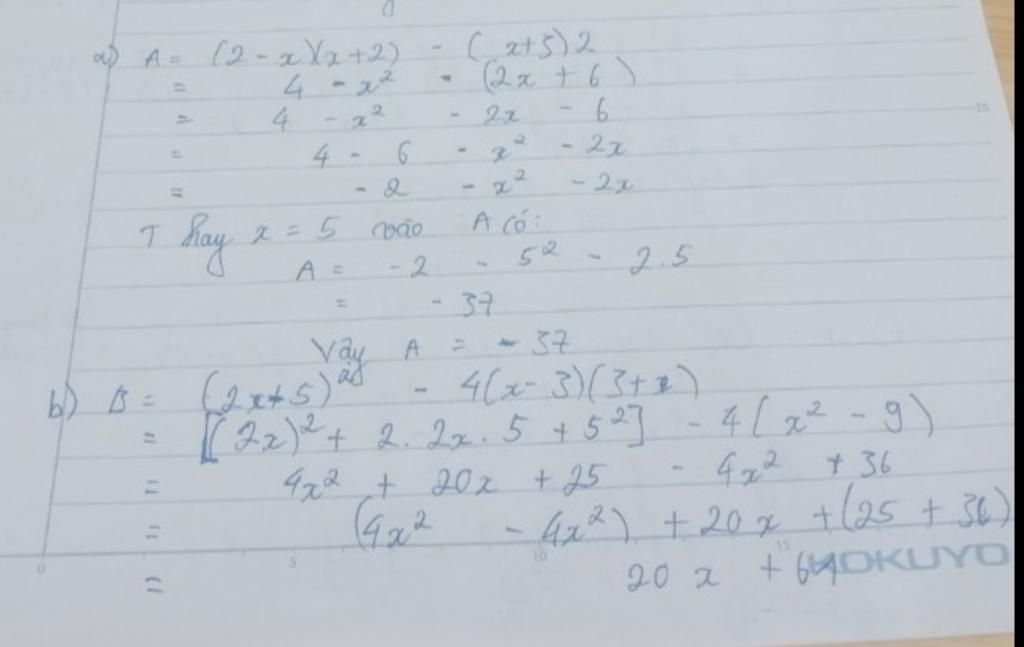 a) A = (2 - x)(x+2) - (x+5)2
= 4 - x² - (2x + 6)
= 4 - x² - 2x - 6
= 4 - 6 - x² - 2x
= - 2 - x² - 2x
Thay x = 5 vào A có:
A = -2 - 5² - 2.5
= - 37
Vậy A = - 37
b) B = (2x+5)² - 4(x-3)(3+x)
= [(2x)² + 2.2x.5 + 5²] - 4(x² - 9)
= 4x² + 20x + 25 - 4x² + 36
= (4x² - 4x²) + 20x + (25 + 36)
= 20x + 61
KOKUYO
0 5 10 15